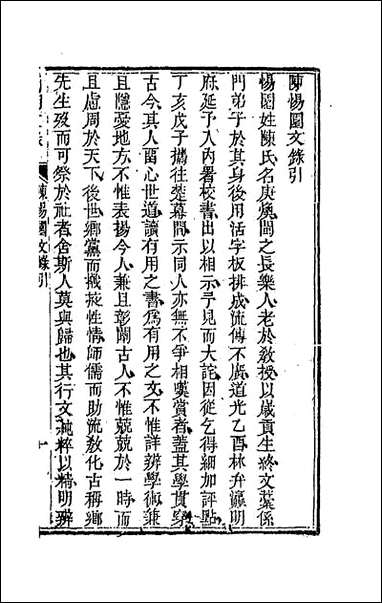 陳惕園文錄引
惕園姓陳氏名庚煥閩之長樂人老於敎授以歲貢生終文藁係
門弟子於其身後用活字板排成流傳不廣道光乙酉林弁瀛明
府延予入內署校書出以相示予見而大詫因從乞得細加評點
丁亥戊子攜往楚幕間示同人亦無不爭相嘆賞者蓋其學貫穿
古今其人留心世道讀有用之書爲有用之文不惟詳辨學術兼
且隱憂地方不惟表揚今人兼且彰闡古人不惟兢兢於一時而
且慮周於天下後世鄉黨而撥菸性情師儒而助流敎化古稱鄉
先生歿而可祭於社者舍斯人莫與歸也其行文純粹以精明辨
陳惕園文錄引
一